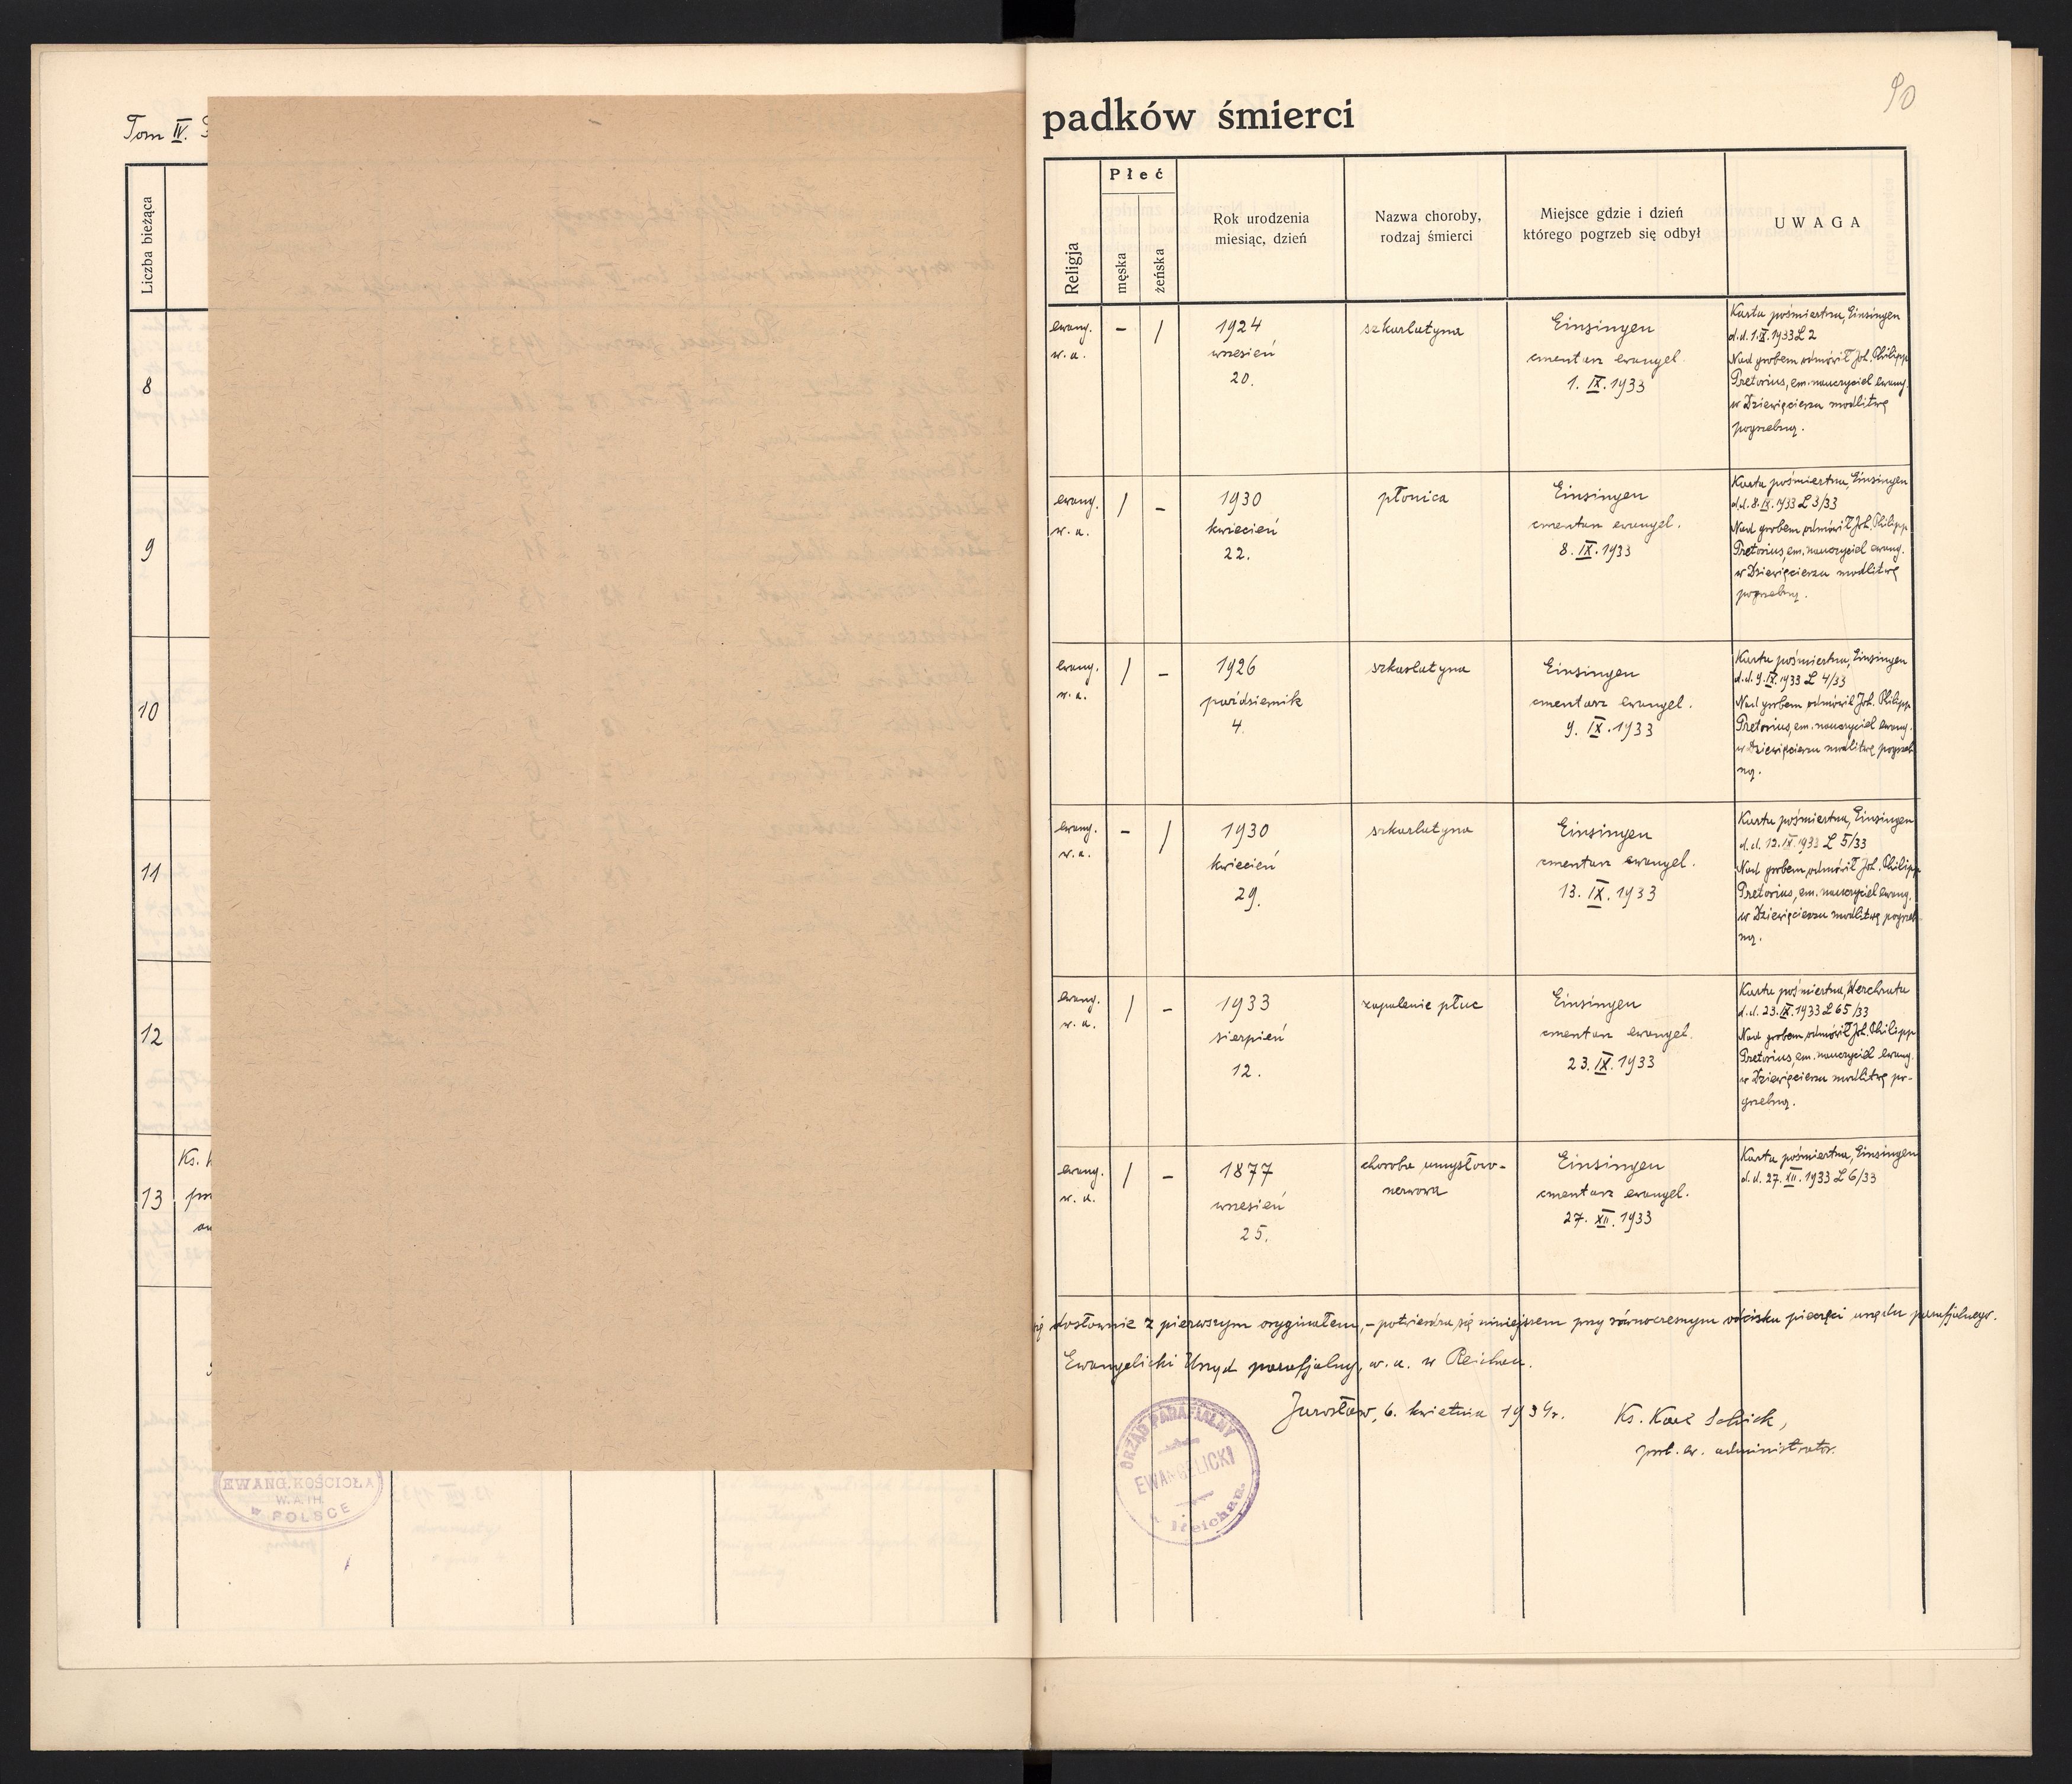 Tom IV.
Liczba bieżąca
8
9
10
11
12
13
Ks.
EWANG. KOŚCIOŁA
W. A. I H.
W POLSCE
90
padków śmierci
Religja
Płeć
męska
żeńska
Rok urodzenia
miesiąc, dzień
Nazwa choroby,
rodzaj śmierci
Miejsce gdzie i dzień
którego pogrzeb się odbył
UWAGA
ewang.
w. a.
–
/
1924
wrzesień
20.
szkarlatyna
Einsingen
cmentarz ewangel.
1. IX. 1933
Karta pośmiertna, Einsingen
d.d. 1.IX.1933 L 2
Nad grobem odmówił Joh. Philipp
Pretorius, em. nauczyciel ewang.
w Dziewięcierzu modlitwę
pogrzebną.
ewang.
w. a.
/
–
1930
kwiecień
22.
płonica
Einsingen
cmentarz ewangel.
8. IX. 1933
Karta pośmiertna, Einsingen
d.d. 8.IX.1933 L 3/33
Nad grobem odmówił Joh. Philipp
Pretorius, em. nauczyciel ewang.
w Dziewięcierzu modlitwę
pogrzebną.
ewang.
w. a.
/
–
1926
październik
4.
szkarlatyna
Einsingen
cmentarz ewangel.
9. IX. 1933
Karta pośmiertna, Einsingen
d.d. 9.IX.1933 L 4/33
Nad grobem odmówił Joh. Philipp
Pretorius, em. nauczyciel ewang.
w Dziewięcierzu modlitwę pogrzeb
ną.
ewang.
w. a.
–
/
1930
kwiecień
29.
szkarlatyna
Einsingen
cmentarz ewangel.
13. IX. 1933
Karta pośmiertna, Einsingen
d.d. 12.IX.1933 L 5/33
Nad grobem odmówił Joh. Philipp
Pretorius, em. nauczyciel ewang.
w Dziewięcierzu modlitwę pogrzeb
ną.
ewang.
w. a.
/
–
1933
sierpień
12.
zapalenie płuc
Einsingen
cmentarz ewangel.
23. IX. 1933
Karta pośmiertna, Werchrata
d.d. 23.IX.1933 L 65/33
Nad grobem odmówił Joh. Philipp
Pretorius, em. nauczyciel ewang.
w Dziewięcierzu modlitwę po-
grzebną.
ewang.
w. a.
/
–
1877
wrzesień
25.
choroba umysłowo-
nerwowa
Einsingen
cmentarz ewangel.
27. XII. 1933
Karta pośmiertna, Einsingen
d.d. 27. XII. 1933 L 6/33
się dosłownie z pierwszym oryginałem, – potwierdza się niniejszem przy równoczesnym odcisku pieczęci urzędu parafjalnego.
Ewangelicki Urząd parafjalny, w. a. w Reichau.
Jarosław, 6. kwietnia 1934 r.
Ks. Karl Schick,
prob. ew. administrator.
URZĄD PARAFIALNY
EWANGELICKI
Reichau.